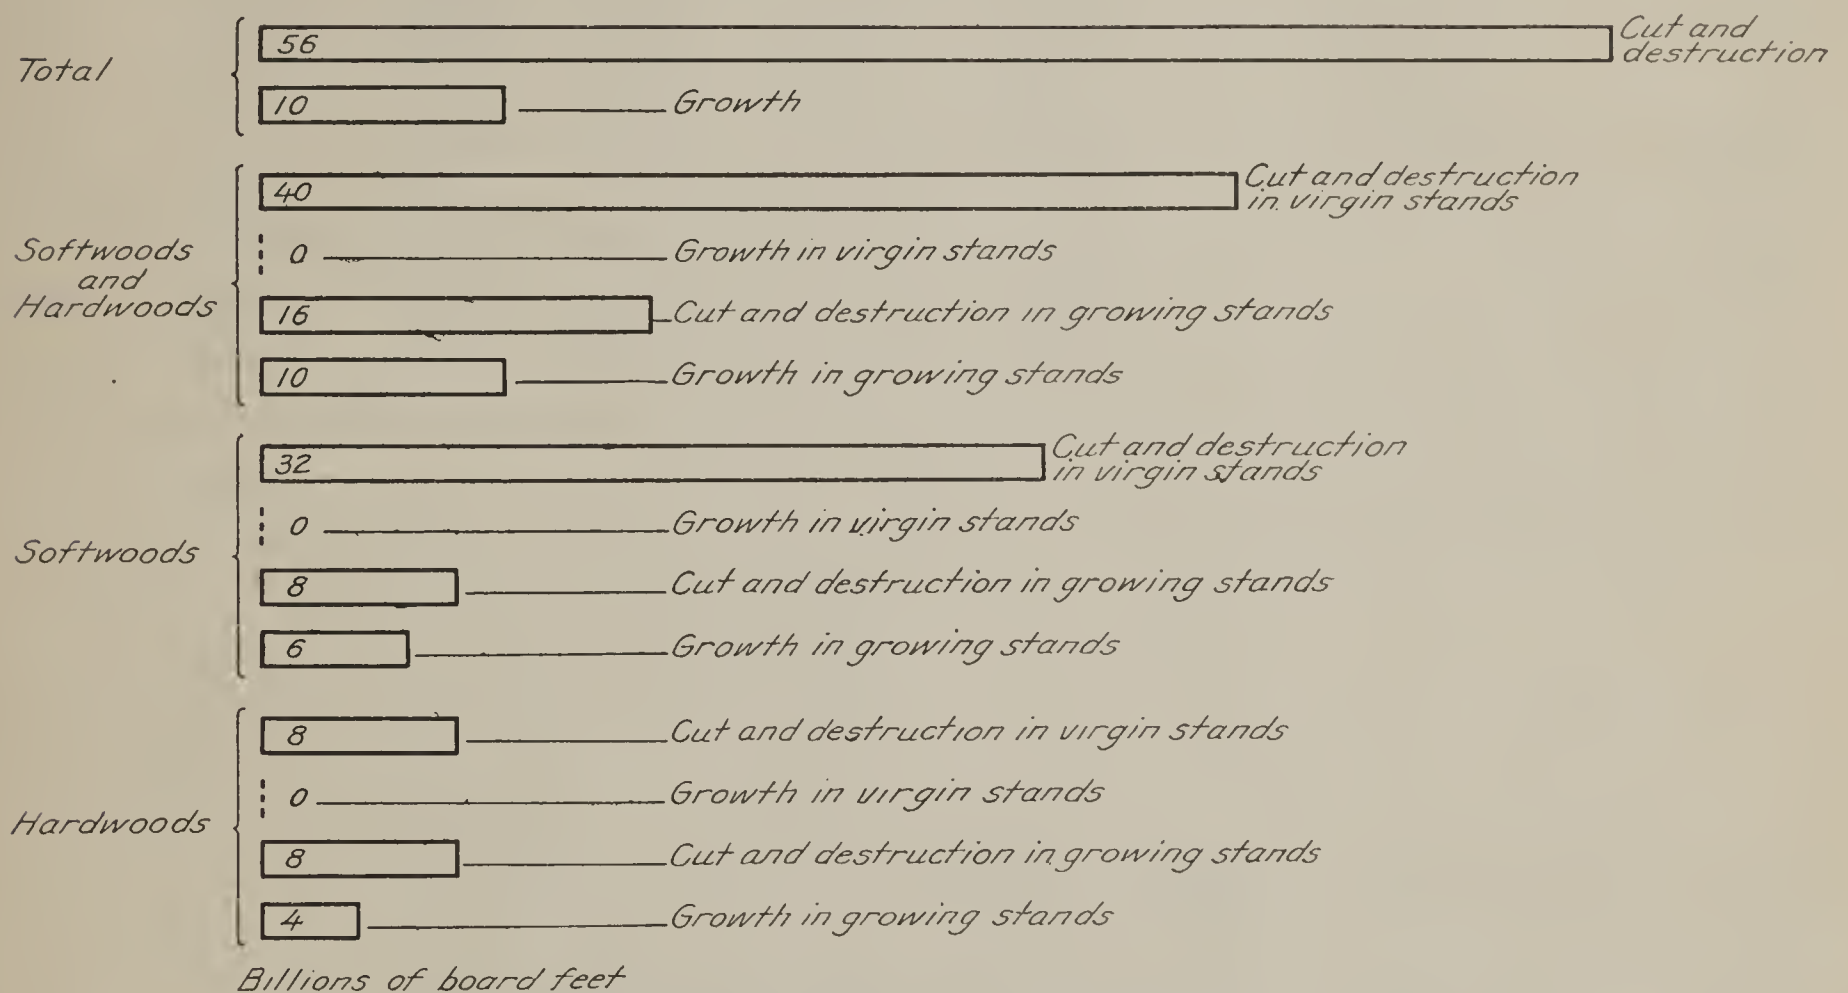 Total
56
Cut and
destruction
10
Growth
Softwoods
and
Hardwoods
40
Cut and destruction
in virgin stands
0
Growth in virgin stands
16
Cut and destruction in growing stands
10
Growth in growing stands
Softwoods
32
Cut and destruction
in virgin stands
0
Growth in virgin stands
8
Cut and destruction in growing stands
6
Growth in growing stands
Hardwoods
8
Cut and destruction in virgin stands
0
Growth in virgin stands
8
Cut and destruction in growing stands
4
Growth in growing stands
Billions of board feet